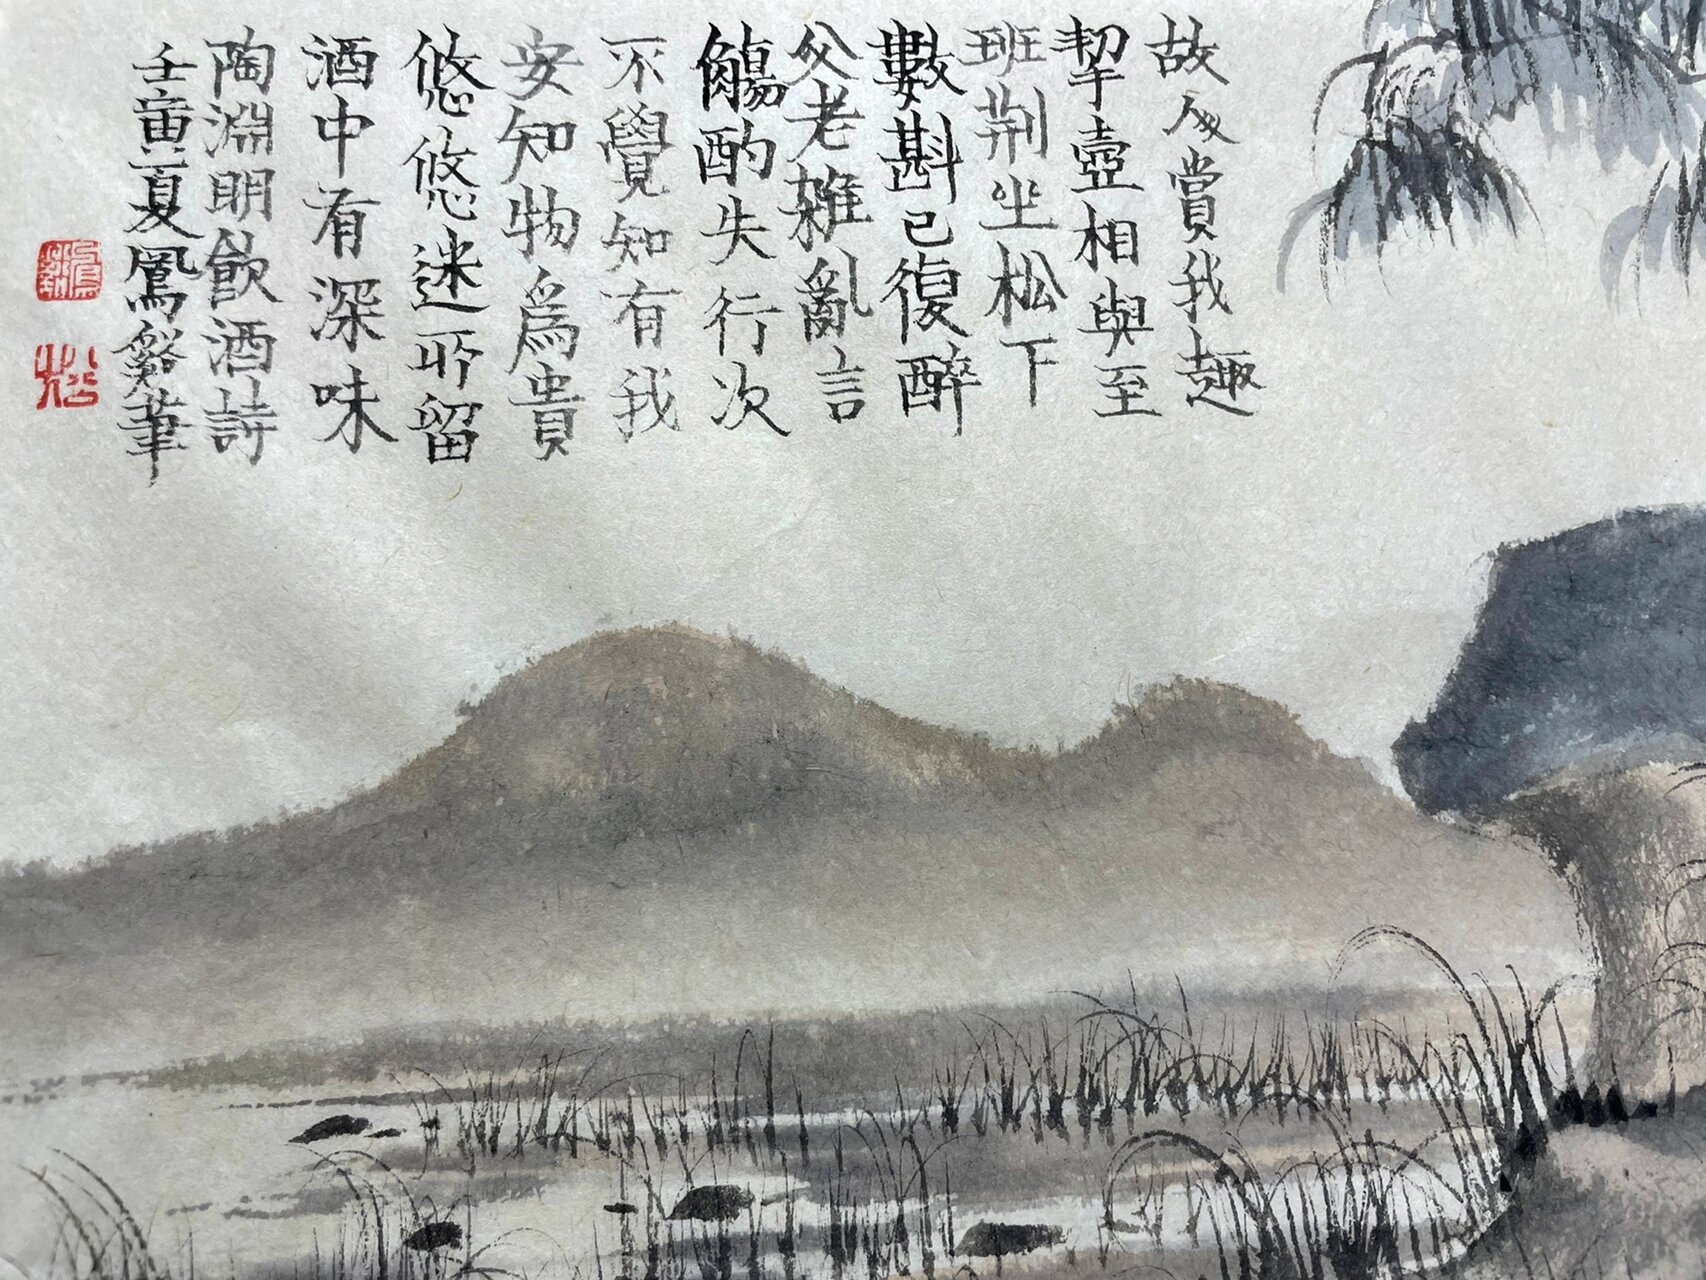 故人賞我趣
挈壺相與至
班荆坐松下
數斟已復醉
父老雜亂言
觴酌失行次
不覺知有我
安知物爲貴
悠悠迷所留
酒中有深味
陶淵明飲酒詩
壬寅夏鳳谿筆